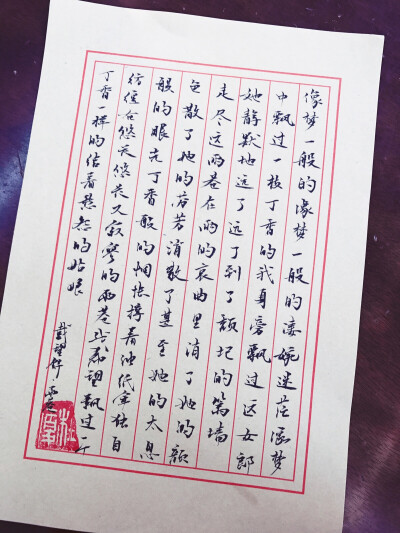 像梦一般的像梦一般的凄婉迷茫像梦
中飘过一枝丁香的我身旁飘过这女郎
她静默地远了远了到了颓圮的篱墙
走尽这雨巷在雨的哀曲里消了她的颜
色散了她的芬芳消散了甚至她的太息
般的眼光丁香般的惆怅撑着油纸伞独自
彷徨在悠长悠长又寂寥的雨巷我希望飘过一个
丁香一样的结着愁怨的姑娘
戴望舒·雨巷